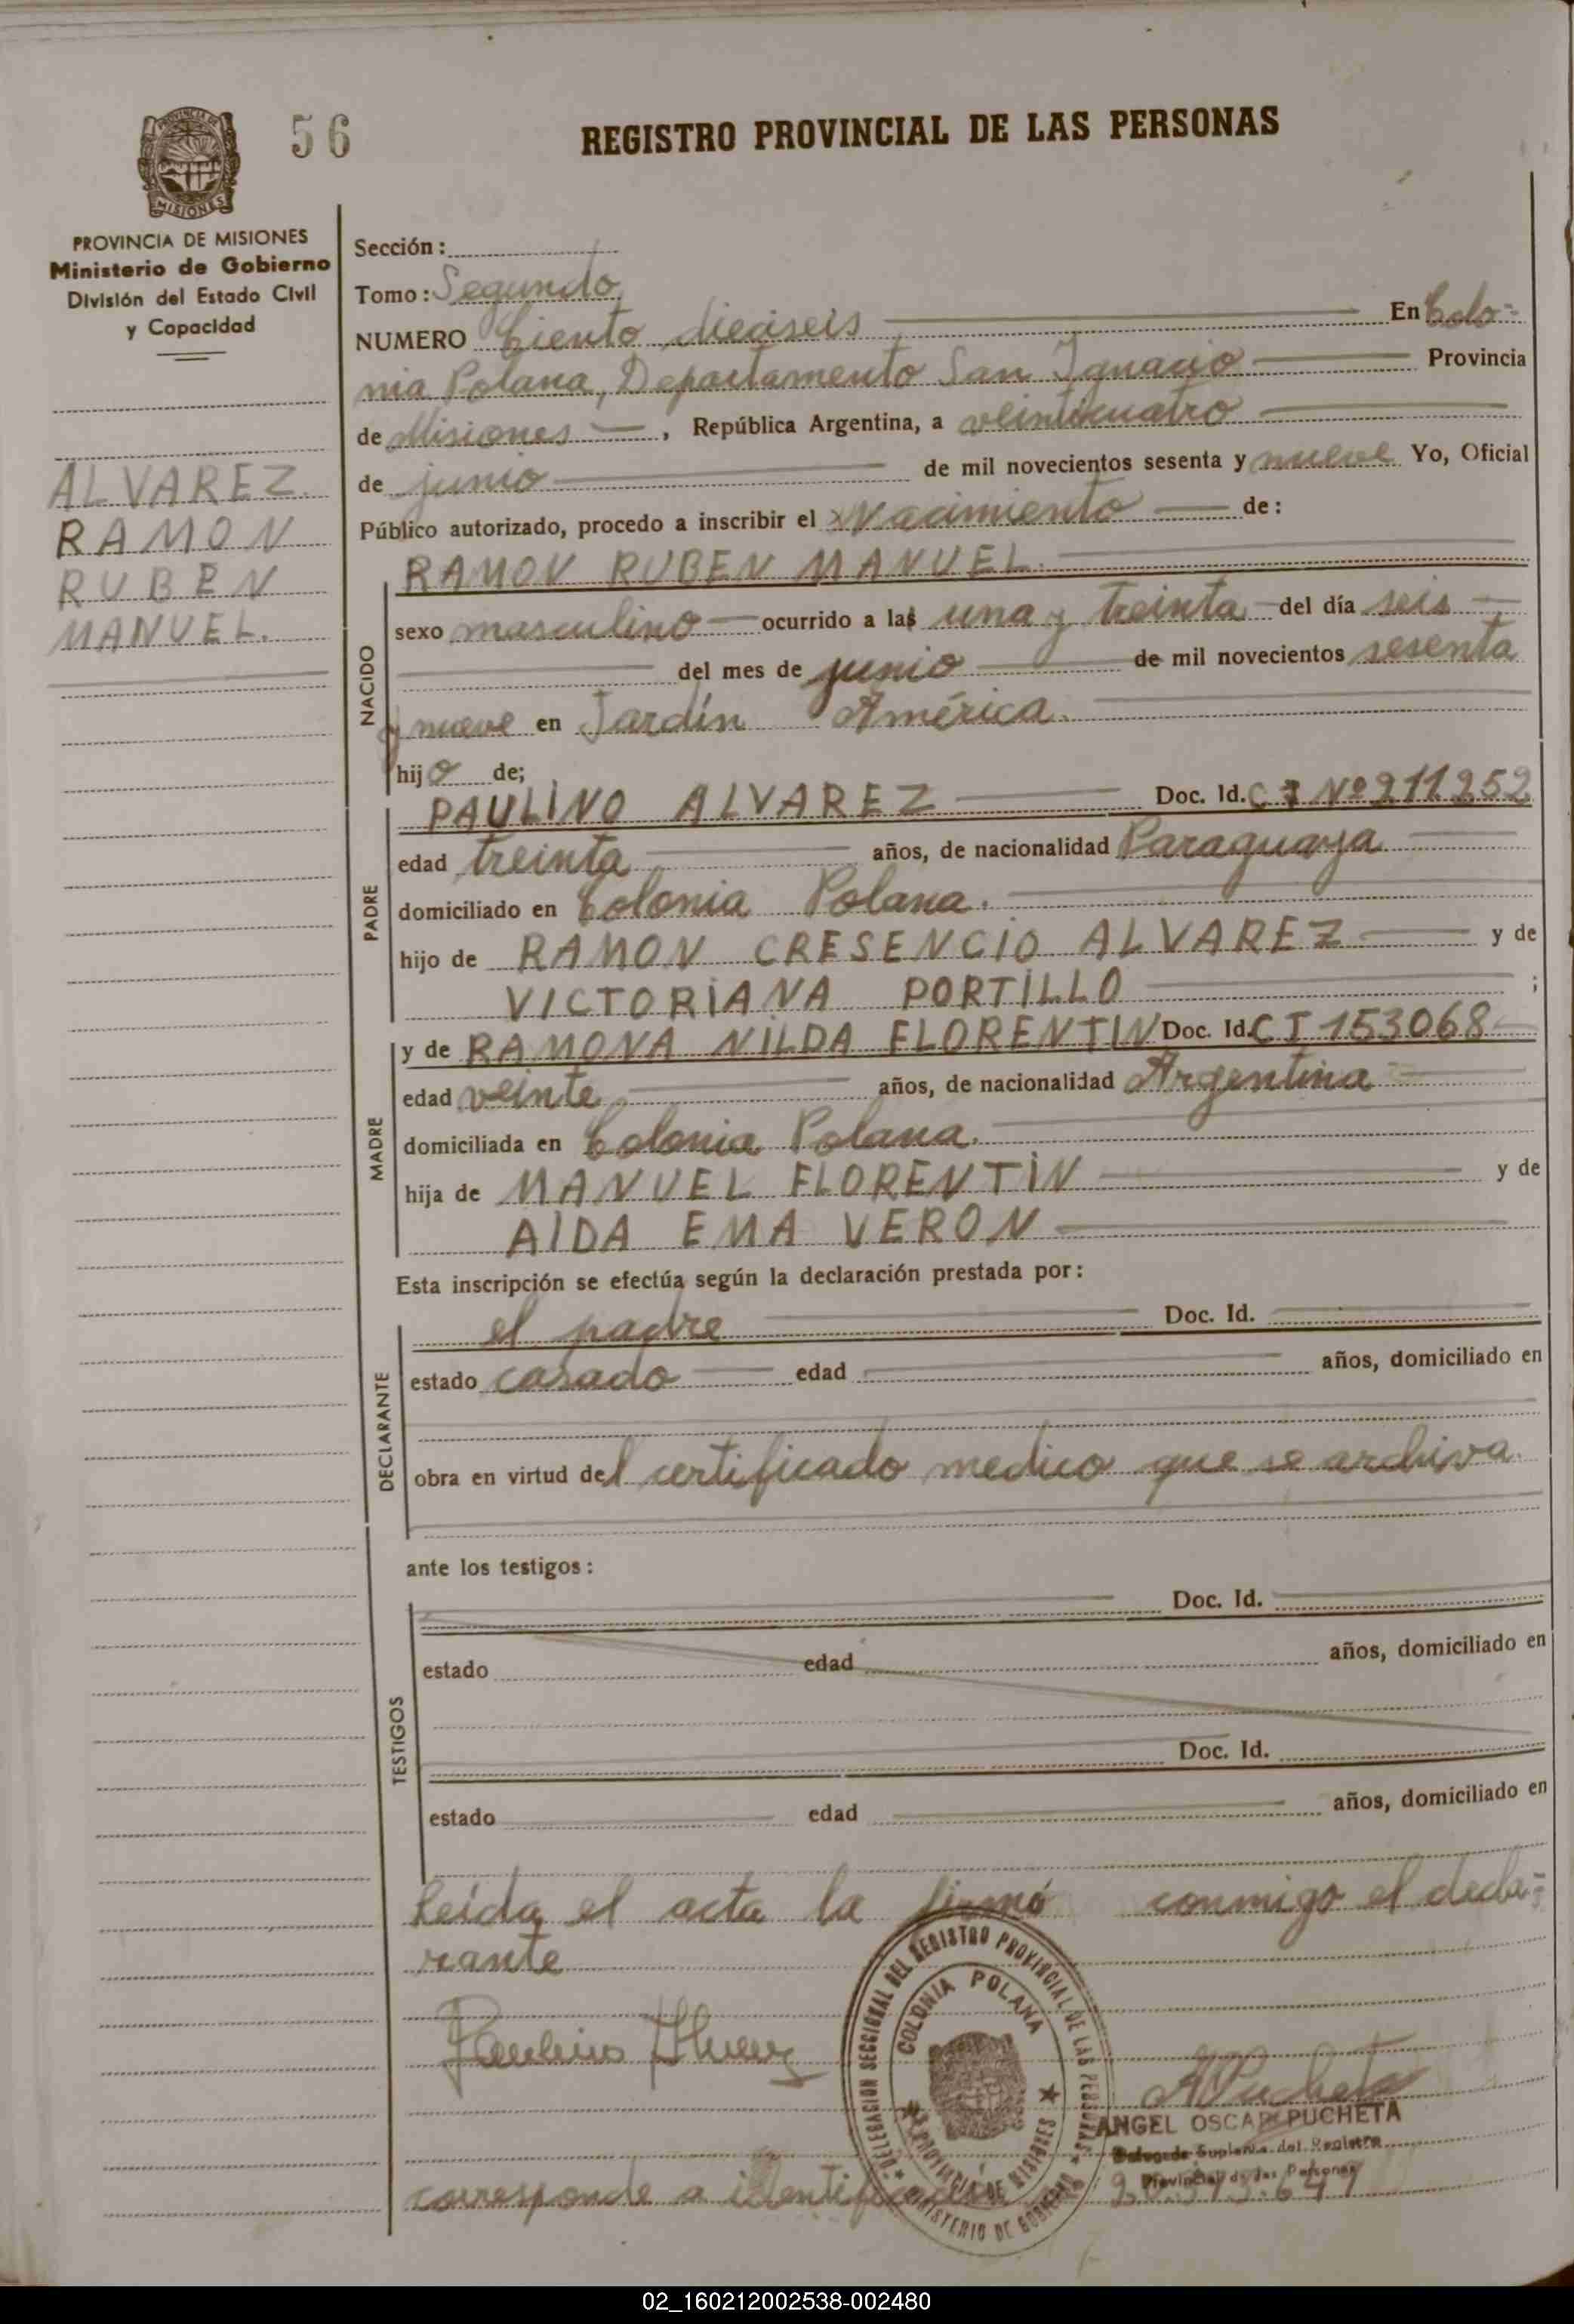 56
REGISTRO PROVINCIAL DE LAS PERSONAS
PROVINCIA DE MISIONES
PROVINCIA DE MISIONES
Ministerio de Gobierno
División del Estado Civil
y Capacidad
ALVAREZ
RAMON
RUBEN
MANUEL.
Sección:
Tomo: Segundo
NUMERO Ciento dieciseis En Colo-
nia Polana, Departamento San Ignacio Provincia
de Misiones, República Argentina, a veinticuatro
de junio de mil novecientos sesenta y nueve Yo, Oficial
Público autorizado, procedo a inscribir el Nacimiento de:
RAMON RUBEN MANUEL.
NACIDO
sexo masculino ocurrido a las una y treinta del día seis
del mes de junio de mil novecientos sesenta
y nueve en Jardín América.
hijo de;
PADRE
PAULINO ALVAREZ Doc. Id. C I Nº 211252
edad treinta años, de nacionalidad Paraguaya
domiciliado en Colonia Polana.
hijo de RAMON CRESENCIO ALVAREZ y de
VICTORIANA PORTILLO ;
MADRE
y de RAMONA NILDA FLORENTIN Doc. Id. C I 153068
edad veinte años, de nacionalidad Argentina
domiciliada en Colonia Polana.
hija de MANUEL FLORENTIN y de
AIDA EMA VERON
Esta inscripción se efectúa según la declaración prestada por:
DECLARANTE
el padre Doc. Id.
estado casado edad años, domiciliado en
obra en virtud del certificado medico que se archiva.
ante los testigos:
TESTIGOS
Doc. Id.
estado edad años, domiciliado en
Doc. Id.
estado edad años, domiciliado en
Leída el acta la firmó conmigo el decla-
rante
Paulino Alvarez
DELEGACION SECCIONAL DEL REGISTRO PROVINCIAL DE LAS PERSONAS
COLONIA POLANA
PROVINCIA DE MISIONES
MINISTERIO DE GOBIERNO
A Pucheta
ANGEL OSCAR PUCHETA
Delegado Suplente del Registro
Provincial de las Personas
corresponde a identificación
02_160212002538-002480